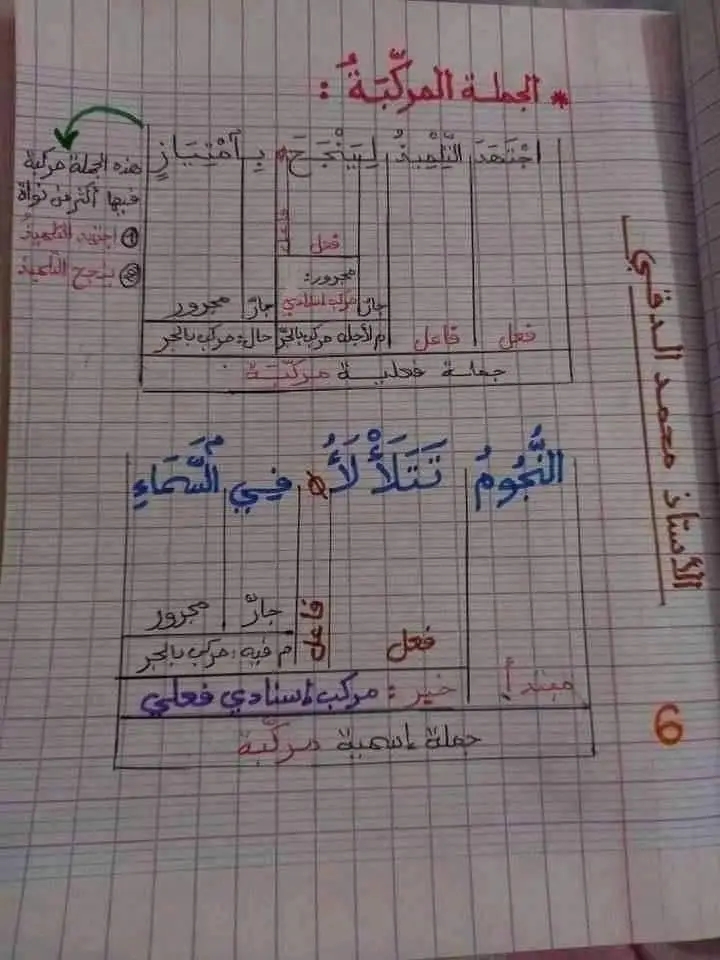 * الجملة المركّبَةُ :
اجْتَهَدَ التِّلْمِيذُ لِيَنْجَحَ بِامْتِيَازٍ
هذه الجملة مركبة
فيها أكثر من نواة
① اجتهد التلميذُ
② ينجح التلميذ
فعل
مجرور:
جارّ مركب إسنادي جارّ مجرور
فعل فاعل م لأجله مركب بالجرّ حال: مركب بالجر
جملة فعلية مركّبَة
النُّجُومُ تَتَلَأْلَأُ ø فِي السَّمَاءِ
فعل فاعل جارّ مجرور
م فيه: مركب بالجر
مبتدأ خبر: مركب إسنادي فعلي
جملة إسمية مركّبة
الأستاذ محمد الدقي
6